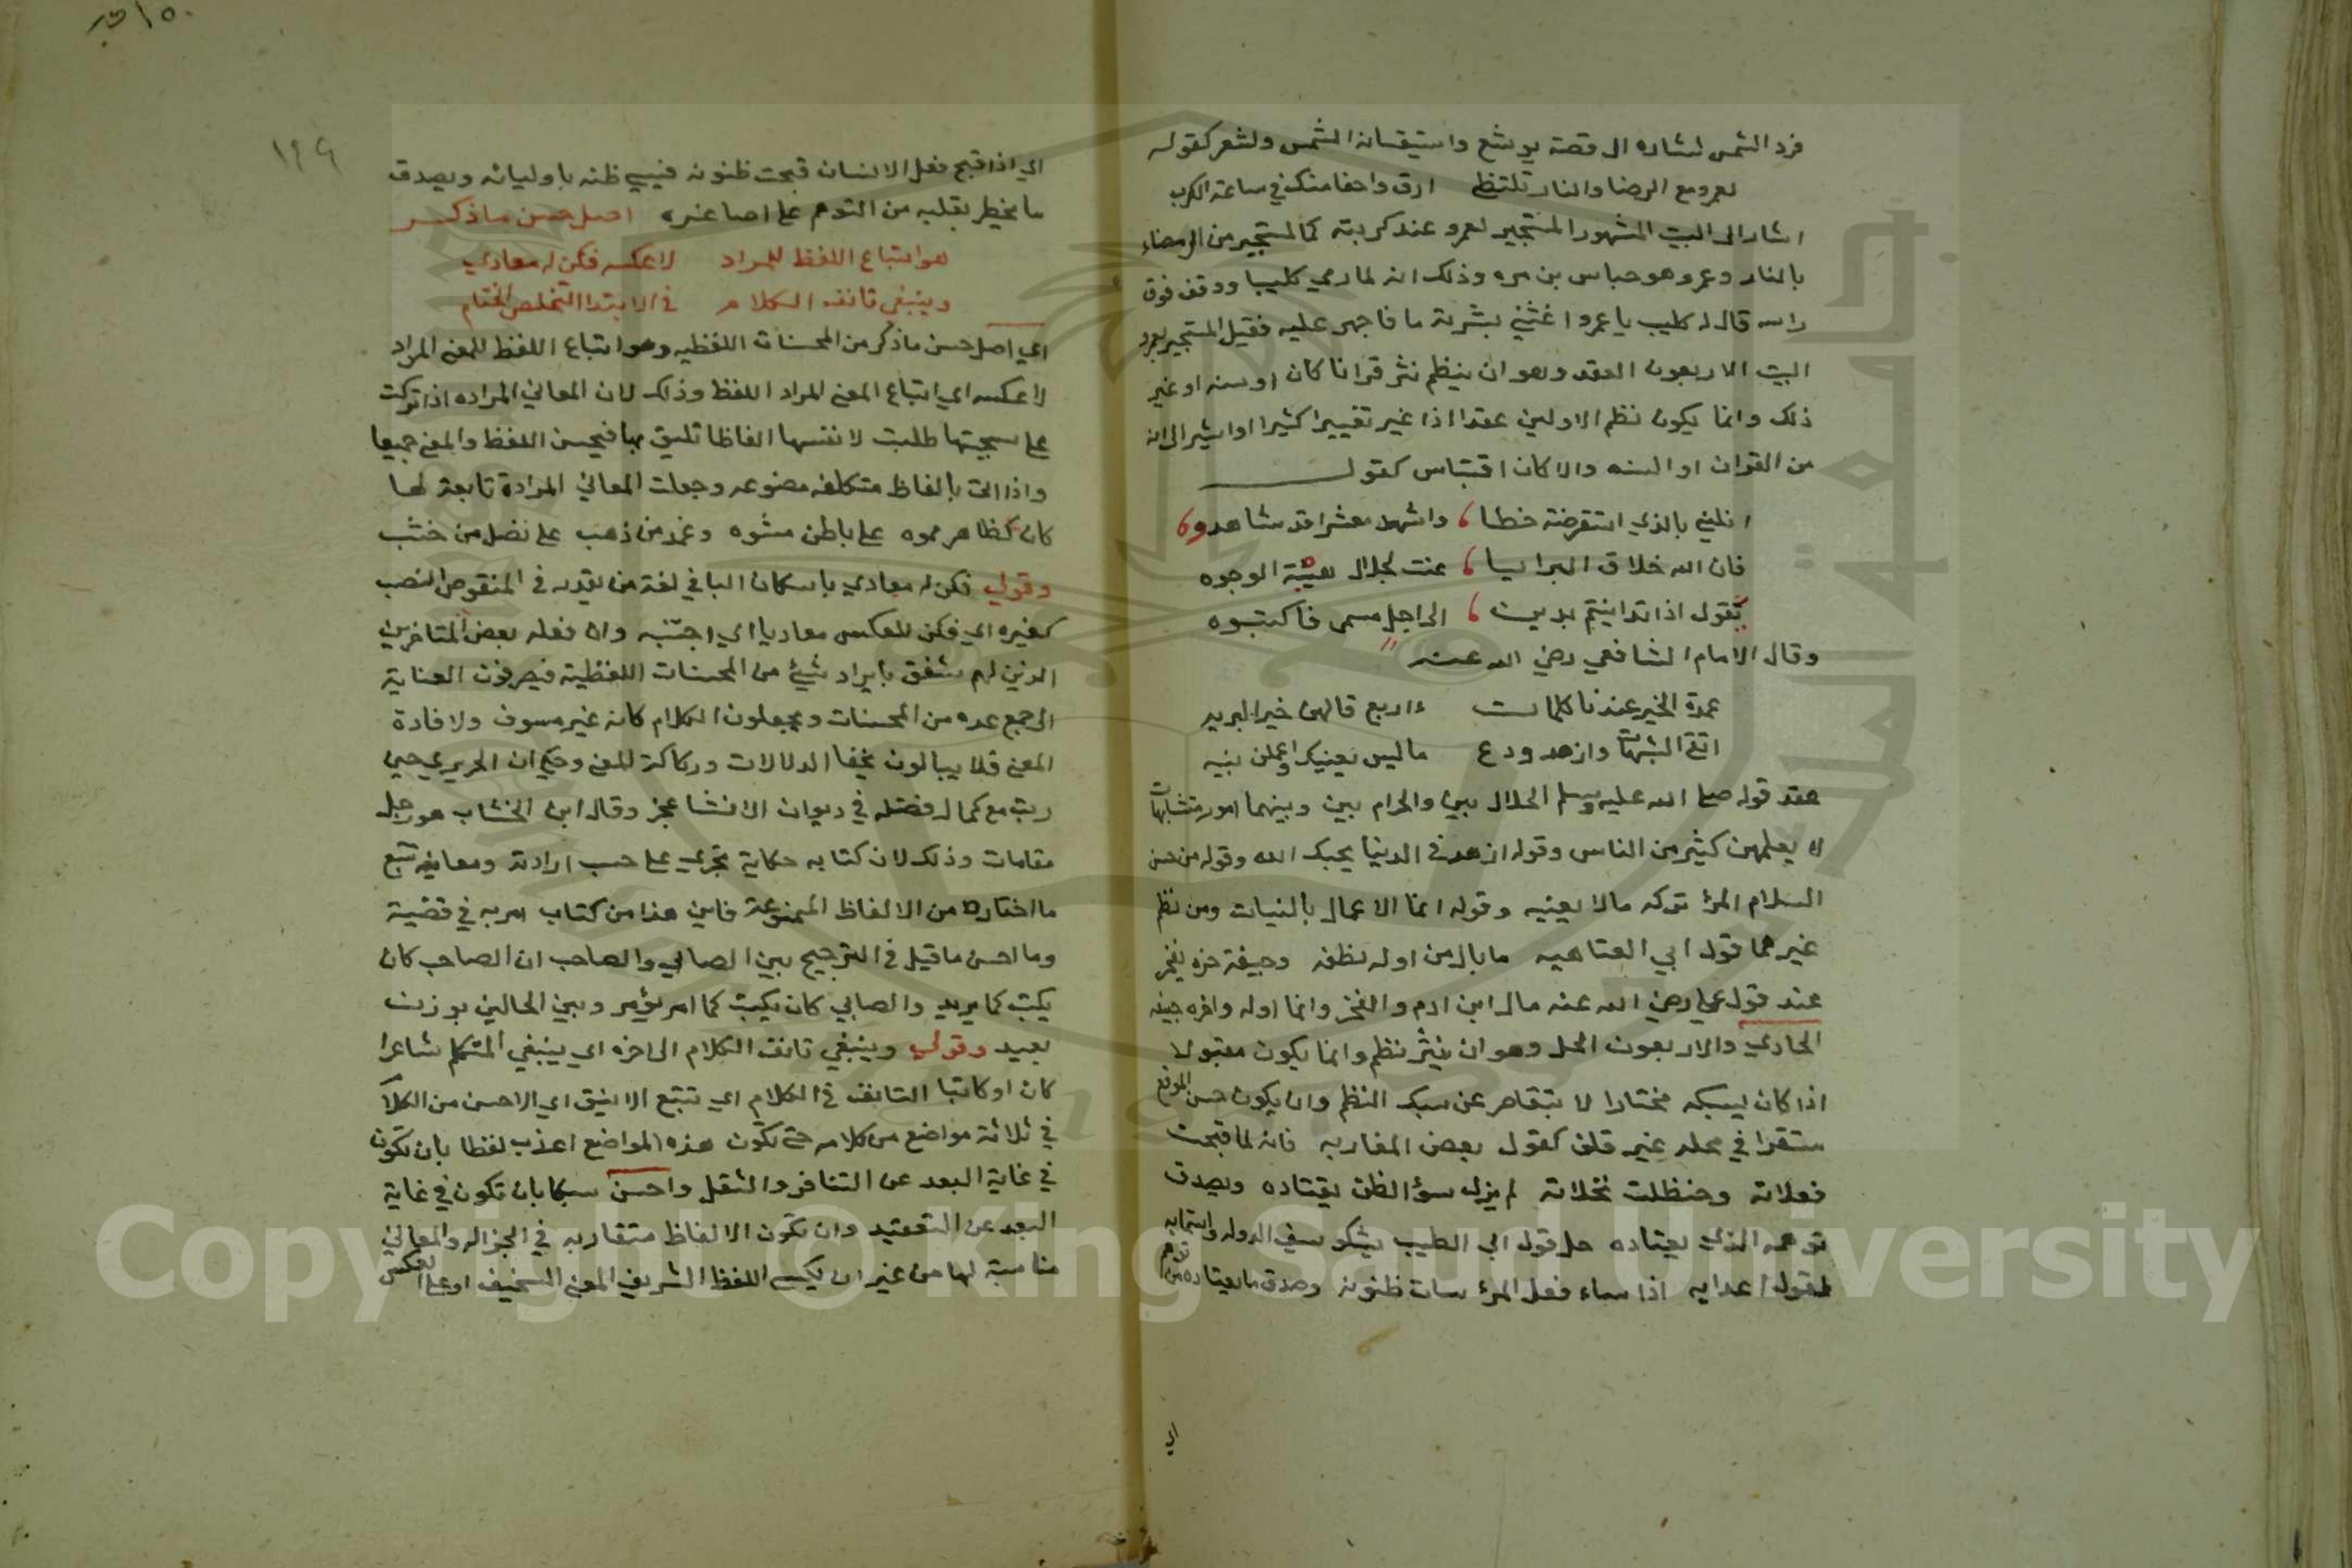 فرد الشمس اشاره الى قصة يوشع واستيقافه الشمس ولشعر كقوله
لعمرو مع الرمضا والنار تلتظى ارق واحفا منك في ساعة الكرب
اشار الى البيت المشهور المستجير بعمرو عند كربته كالمستجير من الرمضاء
بالنار وعمرو هو جساس بن مره وذلك انه لما رمى كليبا ووقف فوق
راسه قال له كليب يا عمرو اغثني بشربة ما فاجهز عليه فقيل المستجير بعمرو
البيت الاربعون العقد وهو ان ينظم نثر قرانا كان او سنه او غير
ذلك وانما يكون نظم الاولين عقدا اذا غير تغييرا كثيرا او اشير الى انه
من القران او السنه والا كان اقتباس كقوله
انلني بالذي استقرضت خطا واشهد معشرا قد شاهدوه
فان الله خلاق البرايا عنت لجلال هيبته الوجوه
يقول اذا تداينتم بدين الى اجل مسمى فاكتبوه
وقال الامام الشافعي رضي الله عنه
عمدة الخير عندنا كلمات اربع قالهن خير البريه
اتق الشبهات وازهد ودع ما ليس يعنيك واعملن بنيه
عقد قوله صلى الله عليه وسلم الحلال بين والحرام بين وبينهما امور متشابهات
لا يعلمهن كثير من الناس وقوله ازهد في الدنيا يحبك الله وقوله من حسن
اسلام المرء تركه مالا يعنيه وقوله انما الاعمال بالنيات ومن نظم
غيرهما قول ابي العتاهيه ما بال من اوله نطفه وجيفة اخره يفخر
عقد قول علي رضي الله عنه مال ابن ادم والفخر وانما اوله واخره جيفه
الحادي والاربعون الحل وهو ان ينثر نظم وانما يكون مقبولا
اذا كان سبكه مختارا لا يتقاصر عن سبك النظم وان يكون حسن الموقع
مستقرا في محله غير قلق كقول بعض المغاربه فانه لما قبحت
فعلاته وحنظلت نخلاته لم يزل سؤ الظن يقتاده ويصدق
توهمه الذي يعتاده حل قول ابي الطيب يشكو سيف الدوله واستماعه
لقول اعدايه اذا ساء فعل المرء سات ظنونه وصدق ما يعتاده من توهم
اي
١٤٩
اي اذا قبح فعل الانسان قبحت ظنونه فيسيء ظنه باوليائه ويصدق
ما يخطر بقلبه من التوهم على اصاغره اصل حسن ما ذكر
هو اتباع اللفظ للمراد لا عكسه فكن له معادي
وينبغي تانق الكلام في الابتدا التخلص الختام
اي اصل حسن ما ذكر من المحسنات اللفظيه وهو اتباع اللفظ للمعنى المراد
لا عكسه اي اتباع المعنى المراد اللفظ وذلك لان المعاني المراده اذا تركت
على سجيتها طلبت لانفسها الفاظا تليق بها فيحسن اللفظ والمعنى جميعا
واذا اتى بالفاظ متكلفه مصنوعه وجعلت المعاني المرادة تابعة لها
كان كظاهر مموه على باطن مشوه وغمد من ذهب على نصل من خشب
وقولي فكن له معادي باسكان اليا في لغة من يقدره في المنقوص النصب
كغيره اي فكن للعكس معاديا اي اجتنبه وان فعله بعض المتاخرين
الذين لهم شغف بايراد شيء من المحسنات اللفظية فيصرفون العناية
الى جمع عده من المحسنات ويجعلون الكلام كانه غير مسوق ولا فادة
المعنى فلا يبالون بخفا الدلالات وركاكة المعنى وحكي ان الحريري حين
رتب مع كمال فضله في ديوان الانشا عجز وقال ابن الخشاب هو رجل
مقامات وذلك لان كتابه حكاية تجري على حسب ارادته ومعانيه تتبع
ما اختاره من الالفاظ المصنوعة فاين هذا من كتاب امر به في قضية
وما احسن ما قيل في الترجيح بين الصابي والصاحب ان الصاحب كان
يكتب كما يريد والصابي كان يكتب كما امر يؤمر وبين الحالين بون
بعيد وقولي وينبغي تانق الكلام الى اخره اي ينبغي المتكلم شاعرا
كان او كاتبا التانق في الكلام اي تتبع الانيق اي الاحسن من الكلام
في ثلاثة مواضع من كلامه حتى تكون هذه المواضع اعذب لفظا بان تكون
في غاية البعد عن التنافر والثقل واحسن سبكا بان تكون في غاية
البعد عن التعقيد وان تكون الالفاظ متقاربه في الجزاله والمعاني
مناسبة لها من غير ان يكسى اللفظ الشريف المعنى السخيف او على العكس
Copyright © King Saud University